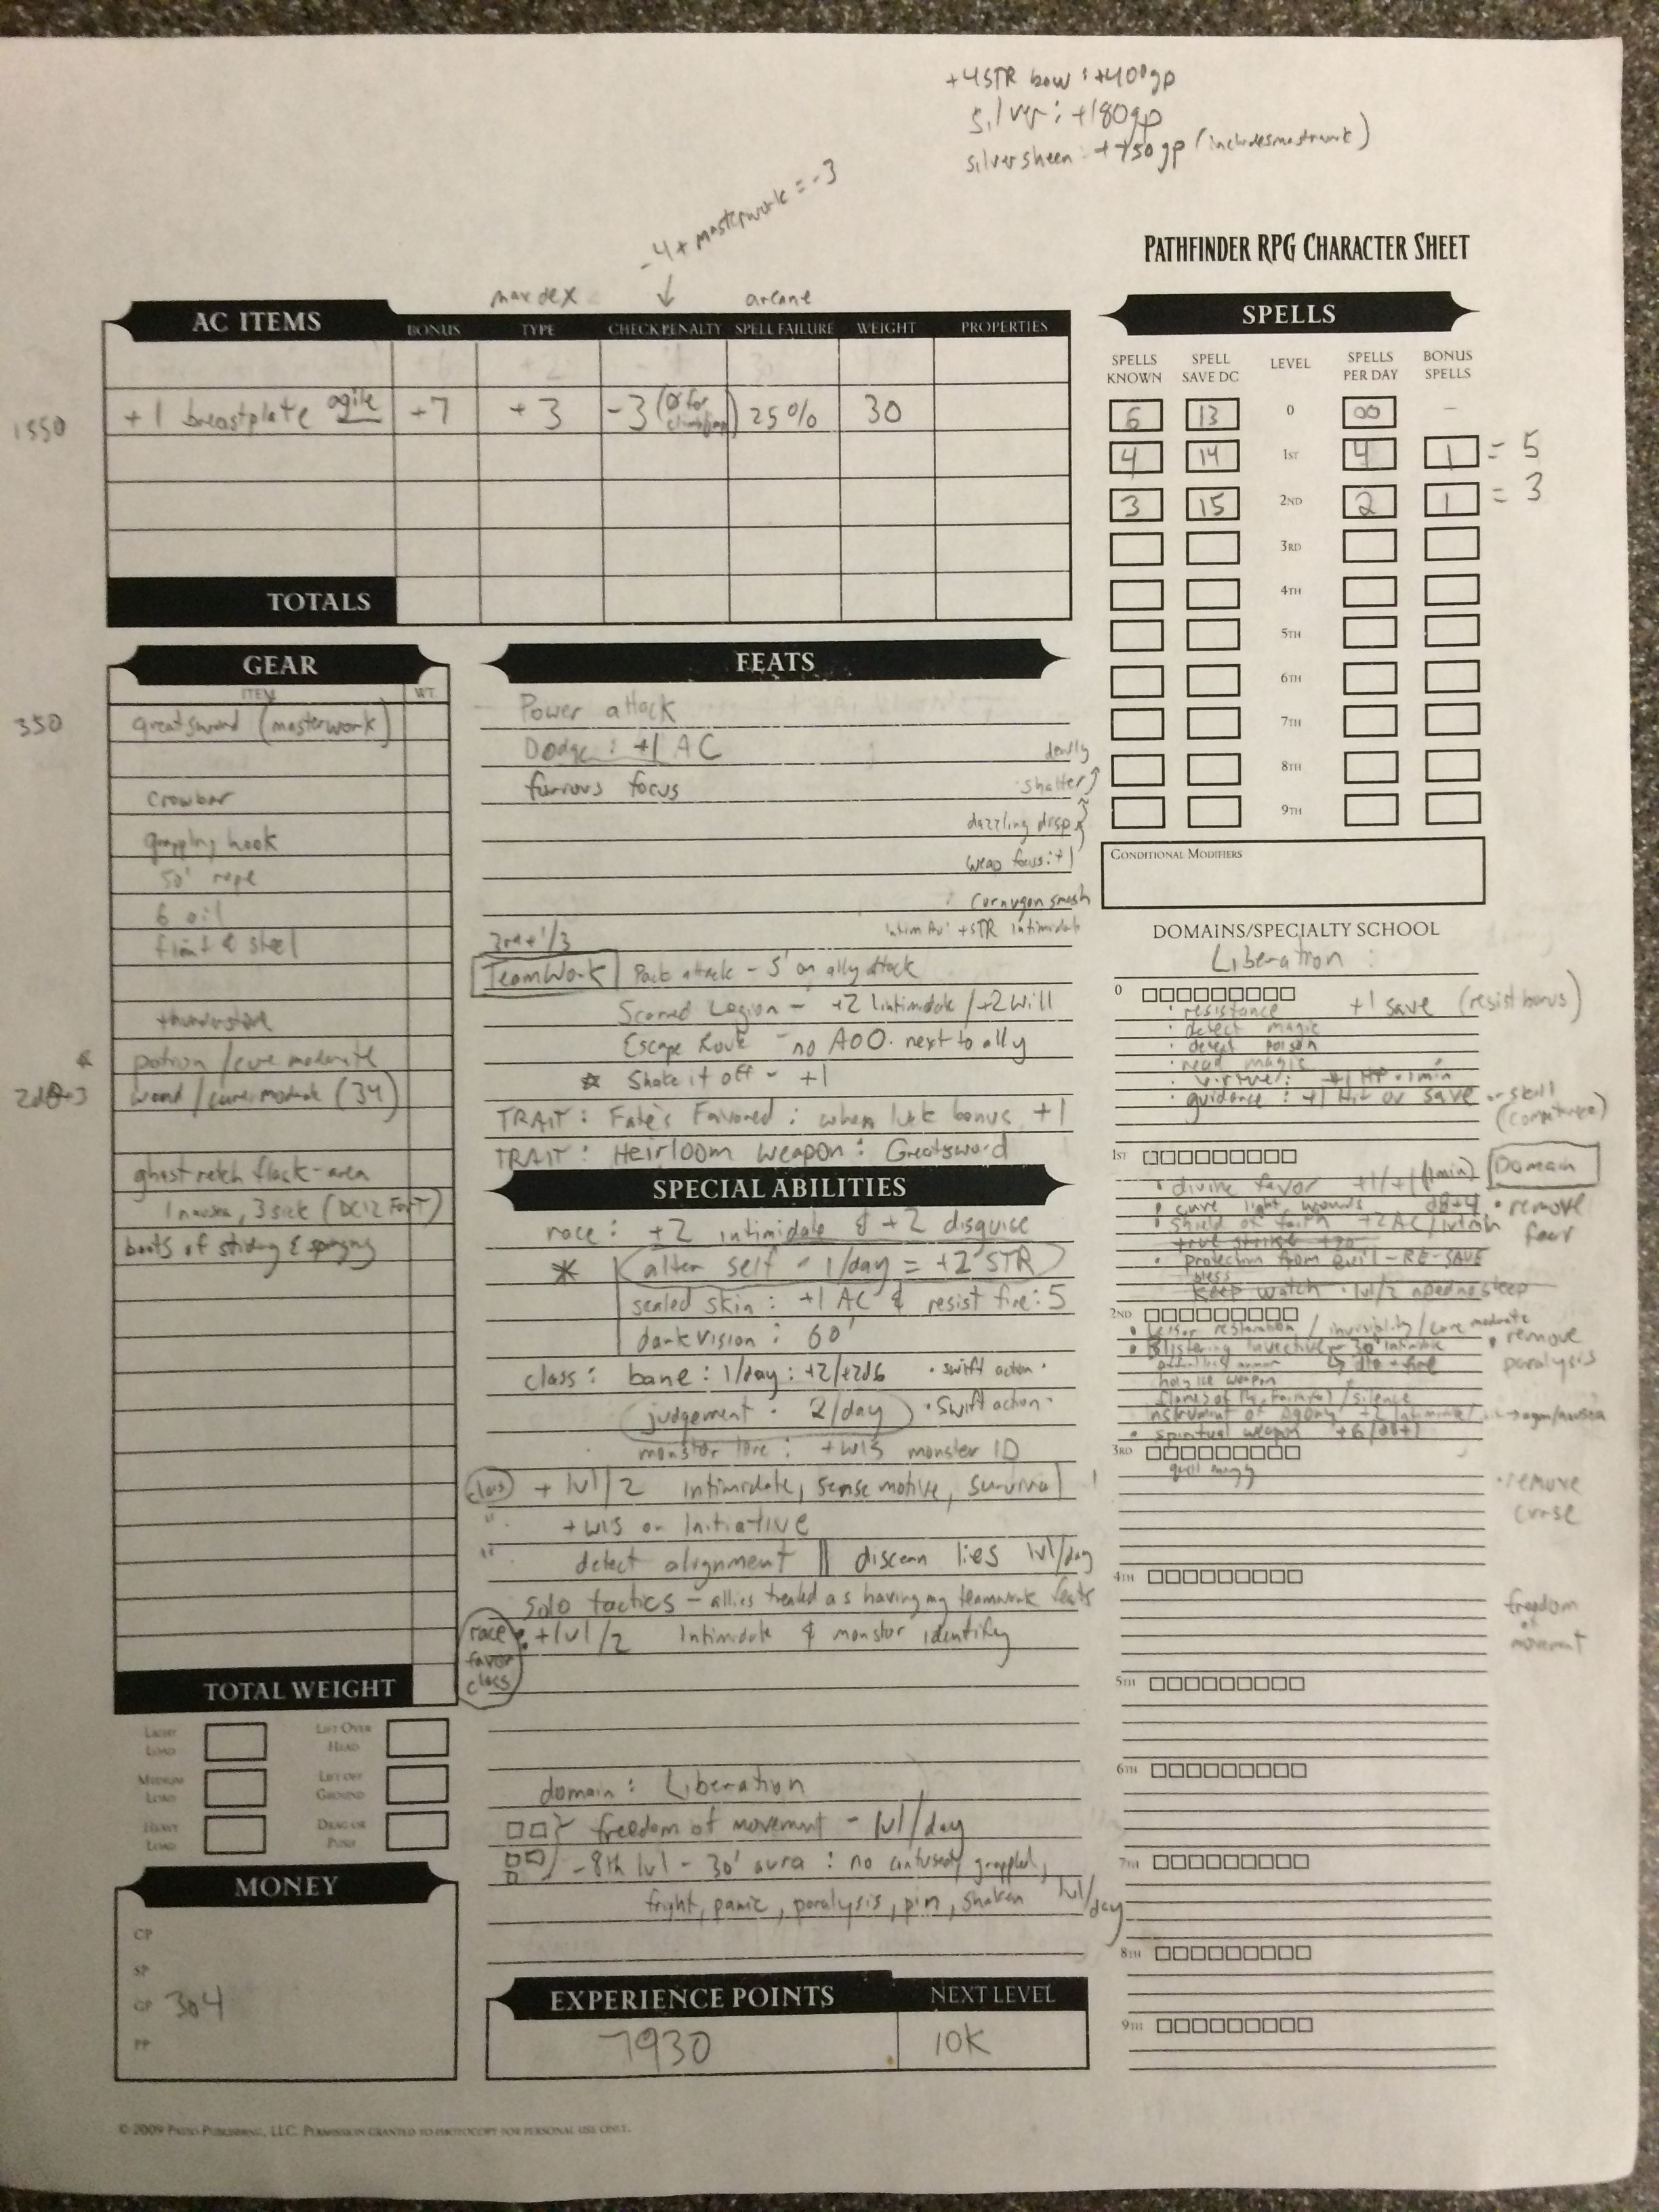 +4 STR bow : +400gp
silver : +180gp
silversheen : +750gp (includes mastrwork)
-4 + masterwork = -3
PATHFINDER RPG CHARACTER SHEET
max dex
arcane
AC ITEMS
BONUS TYPE CHECK PENALTY SPELL FAILURE WEIGHT PROPERTIES
1550 +1 breastplate agile +7 +3 -3 (0 for climb/jmp) 25% 30
TOTALS
SPELLS
SPELLS KNOWN SPELL SAVE DC LEVEL SPELLS PER DAY BONUS SPELLS
6 13 0 ∞ —
4 14 1ST 4 1 = 5
3 15 2ND 2 1 = 3
3RD
4TH
5TH
6TH
7TH
8TH
9TH
CONDITIONAL MODIFIERS
GEAR
ITEM WT.
350 greatsword (masterwork)
crowbar
grappling hook
50' rope
6 oil
flint & steel
thunderstone
potion / cure moderate
2d8+3 wand / cure moderate (34)
ghast retch flask - area
1 nausea, 3 sick (DC12 FORT)
boots of striding & springing
TOTAL WEIGHT
LIGHT LOAD LIFT OVER HEAD
MEDIUM LOAD LIFT OFF GROUND
HEAVY LOAD DRAG OR PUSH
MONEY
CP
SP
GP 304
PP
FEATS
Power attack
Dodge : +1 AC
furious focus
deadly
shatter
dazzling disp
weap focus : +1
Cornugon smash
intim +STR intimidate
3rd + 1/3
Teamwork Pack attack - 5' on ally attack
Scarred Legion - +2 intimidate / +2 Will
Escape Route - no AOO. next to ally
Shake it off - +1
TRAIT : Fate's Favored : when luck bonus +1
TRAIT : Heirloom Weapon : Greatsword
SPECIAL ABILITIES
race : +2 intimidate & +2 disguise
* alter self - 1/day = +2 STR
scaled skin : +1 AC & resist fire : 5
darkvision : 60'
class : bane : 1/day : +2/+2d6 · swift action ·
judgement · 2/day · swift action ·
monster lore : +WIS monster ID
class + lvl/2 Intimidate, sense motive, survival
" +WIS on Initiative
" detect alignment || discern lies lvl/day
solo tactics - allies treated as having my teamwork feats
race favor class : +lvl/2 Intimidate & monstor identify
domain : Liberation
freedom of movement - lvl/day
- 8th lvl - 30' aura : no confused, grappled,
fright, panic, paralysis, pin, shaken lvl/day
EXPERIENCE POINTS NEXT LEVEL
7930 10K
DOMAINS/SPECIALTY SCHOOL
Liberation :
0
· resistance +1 save (resist bonus)
· detect magic
· detect poison
· read magic
· virtue : +1 HP · 1min
· guidance : +1 Hit or save or skill (competence)
1ST
Domain
· divine favor +1/+1 (1min)
· cure light wounds d8+4 · remove fear
· shield of faith +2 AC / 1min
true strike +20
· protection from evil - RE-SAVE
bless
keep watch · lvl/2 need no sleep
2ND
· Lesser restoration / invisibility / cure moderate
· Blistering Invective - 30' intimidate · remove paralysis
holy ice weapon
flames of the faithful / silence
instrument of agony +2 intimidate
· spiritual weapon
3RD
· remove curse
4TH
freedom of movement
5TH
6TH
7TH
8TH
9TH
© 2009 PAIZO PUBLISHING, LLC. PERMISSION GRANTED TO PHOTOCOPY FOR PERSONAL USE ONLY.